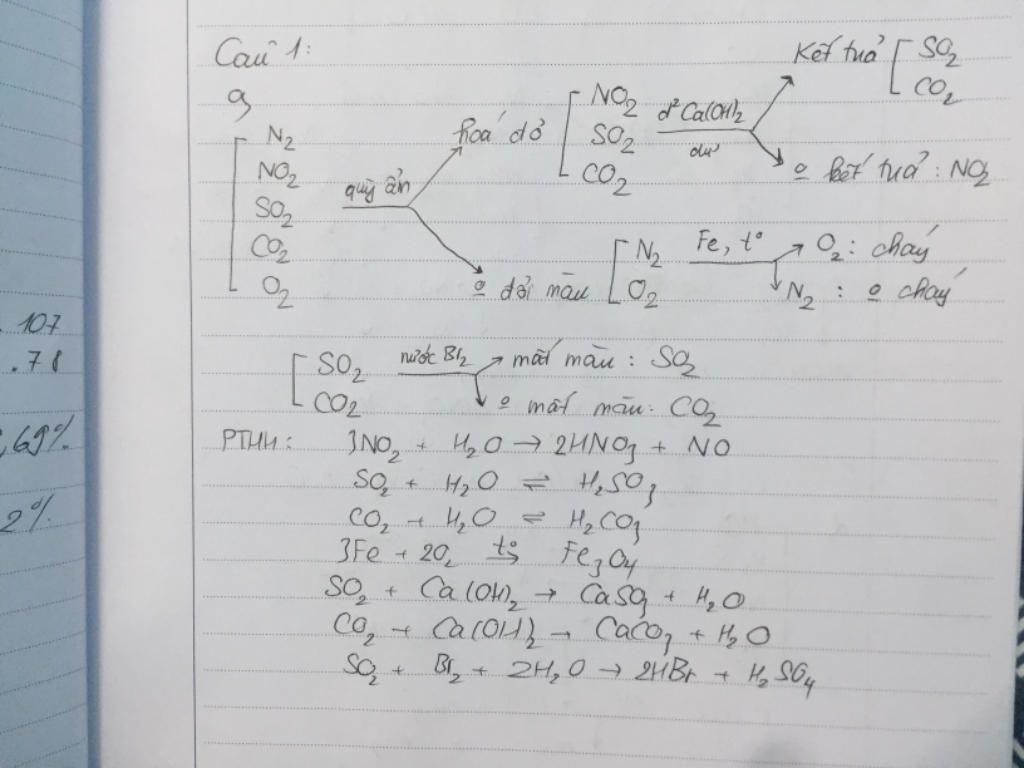 Câu 1:
a,
N₂
NO₂
SO₂
CO₂
O₂
quỳ ẩm
hoá đỏ
NO₂
SO₂
CO₂
d² Ca(OH)₂
dư
kết tuả
SO₂
CO₂
o kết tuả : NO₂
o đổi màu
N₂
O₂
Fe, t°
O₂ : cháy
N₂ : o cháy
SO₂
CO₂
nước Br₂
mất màu : SO₂
o mất màu: CO₂
PTHH: 3NO₂ + H₂O → 2HNO₃ + NO
SO₂ + H₂O ⇌ H₂SO₃
CO₂ + H₂O ⇌ H₂CO₃
3Fe + 2O₂ t°→ Fe₃O₄
SO₂ + Ca(OH)₂ → CaSO₃ + H₂O
CO₂ + Ca(OH)₂ → CaCO₃ + H₂O
SO₂ + Br₂ + 2H₂O → 2HBr + H₂SO₄
. 107
. 78
,69%
2%